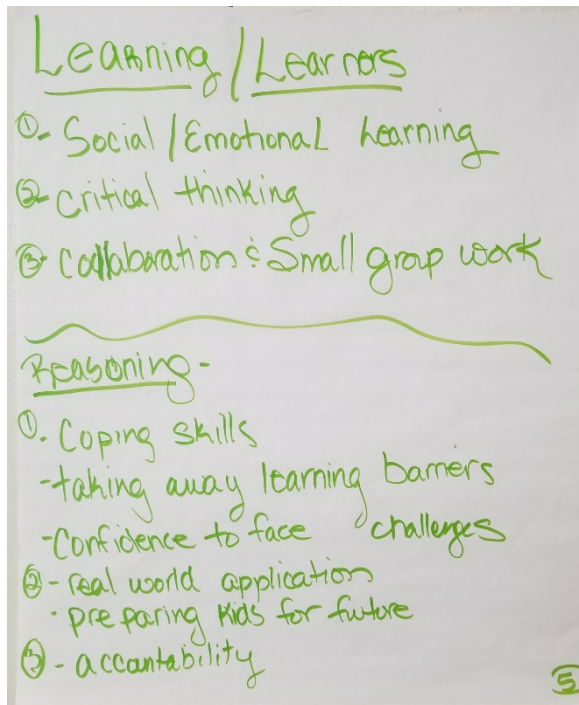 Learning/Learners
①- Social/Emotional Learning
②- Critical thinking
③- Collaboration & Small group work
Reasoning -
①. Coping skills
-taking away learning barriers
-Confidence to face challenges
②- real world application
· preparing kids for future
③- accantability
⑤